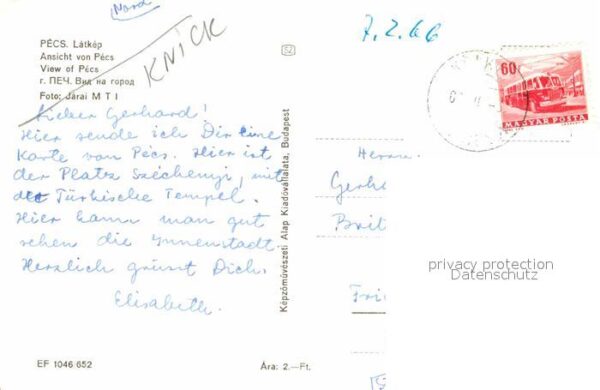 Nord
PÉCS. Látkép
Ansicht von Pécs
View of Pécs
г. ПЕЧ. Вид на город
Foto: Járai M T I
KNICK
52
7.2.66
60
MAGYAR POSTA
Lieber Gerhard!
Hier sende ich Dir eine
Karte von Pécs. Hier ist
der Platz Széchenyi, mit
Türkische Tempel.
Hier kann man gut
sehen die Innenstadt.
Herzlich grüsst Dich.
Elisabeth.
Képzőművészeti Alap Kiadóvállalata, Budapest
Herrn
Gerh
Brit
Fri
privacy protection
Datenschutz
EF 1046 652
Ára: 2.–Ft.